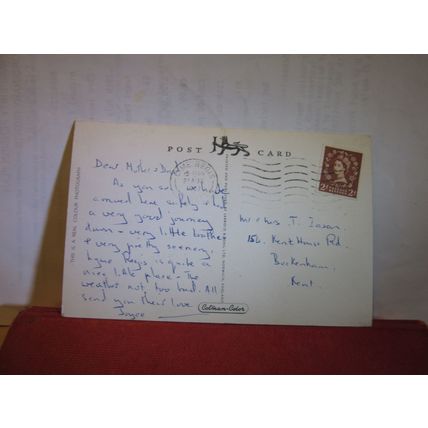 POST CARD
THIS IS A REAL COLOUR PHOTOGRAPH
Dear Mother & Dad,
As you see we have
arrived here safely & had
a very good journey
down - very little traffic
& very pretty scenery.
Lyme Regis is quite a
nice little place - The
weather not too bad. All
send you their love
Joyce
Colman-Color
LYME REGIS
2d 2d
Mr & Mrs T.
156, Kent House Rd.
Beckenham,
Kent.